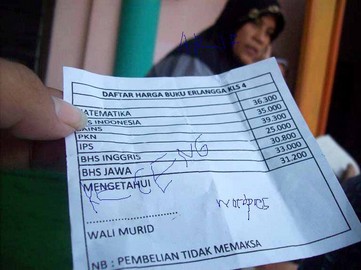 DAFTAR HARGA BUKU ERLANGGA KLS 4
ATEMATIKA 36.300
S INDONESIA 35.000
AINS 39.300
PKN 25.000
IPS 30.800
BHS INGGRIS 33.000
BHS JAWA 31.200
MENGETAHUI
....................
WALI MURID
NB : PEMBELIAN TIDAK MEMAKSA